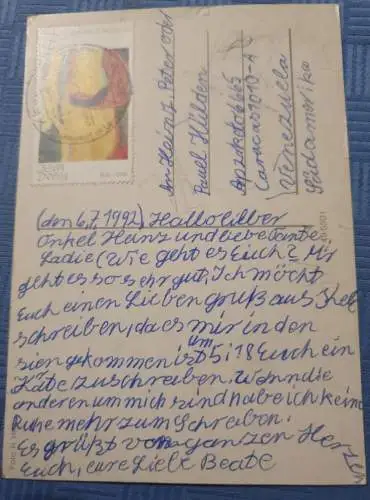 An Heinz Peter oder
Pavel Hülden
Apartado 6665
Caracas 1010-A
Venezuella
Südamerika
(den 6.7.1992) Hallo lilber
Onkel Hanz und liebe Tante
Ladie (Wie geht es Euch? Mir
geht es so sehr gut, Ich möcht
Euch einen Lieben gruß aus
schreiben, da es mir in den
sien gekommen ist um 5:18 Euch ein
Kate zu schreiben. Wenn die
anderen um mich sind habe ich keine
Ruhe mehr zum Schreiben.
Es grüßt von ganzen Herz
Euch, eure Liebe Beate